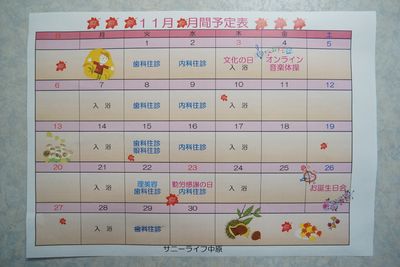 11月 月間予定表
日 月 火 水 木 金 土
1 2 3 4 5
歯科往診 内科往診 文化の日 オンライン
入浴 音楽体操
6 7 8 9 10 11 12
入浴 歯科往診 内科往診 入浴
13 14 15 16 17 18 19
入浴 歯科往診 内科往診 入浴
眼科往診
20 21 22 23 24 25 26
入浴 理美容 勤労感謝の日 入浴 お誕生日会
歯科往診 内科往診
27 28 29 30
入浴 歯科往診 内科往診
サニーライフ中原